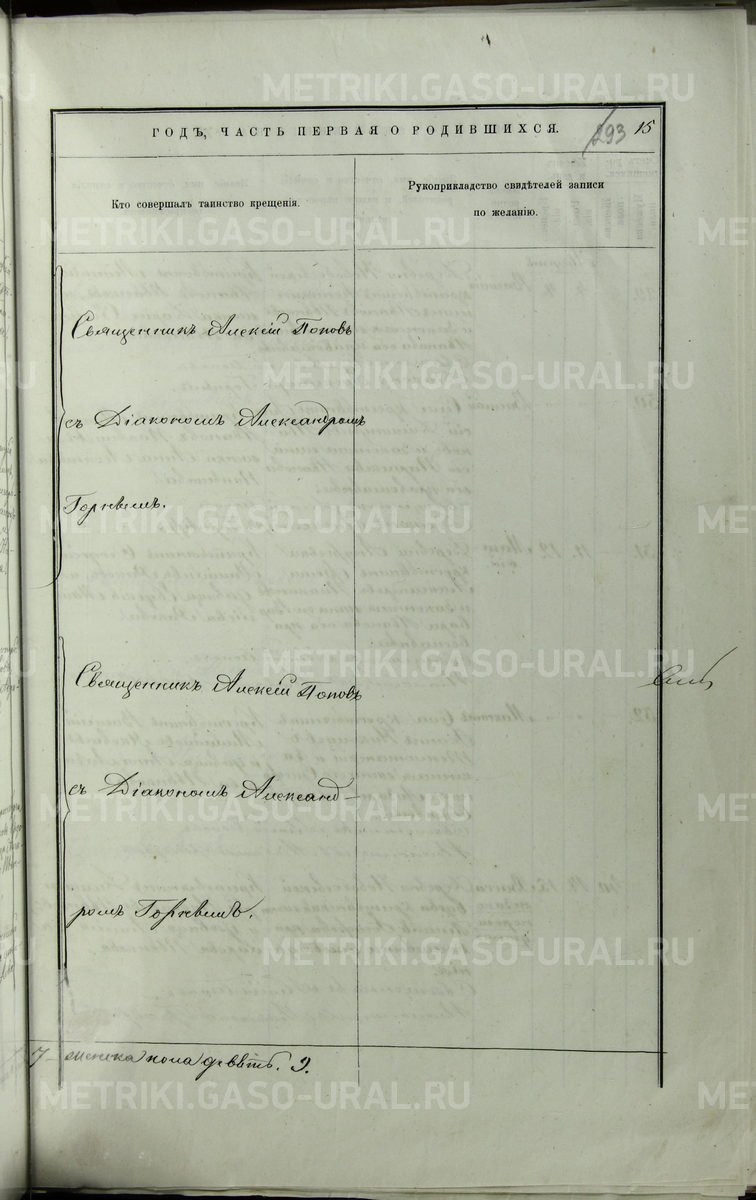 METRIKI.GASO-URAL.RU
ГОДЪ, ЧАСТЬ ПЕРВАЯ О РОДИВШИХСЯ.
293 15
Кто совершалъ таинство крещенія.
Рукоприкладство свидѣтелей записи
по желанію.
Священникъ Алексій Поповъ
съ Діакономъ Александромъ
Священникъ Алексій Поповъ
съ Діакономъ Александ-
ромъ
женска пола девять. 9.
METRIKI.GASO-URAL.RU